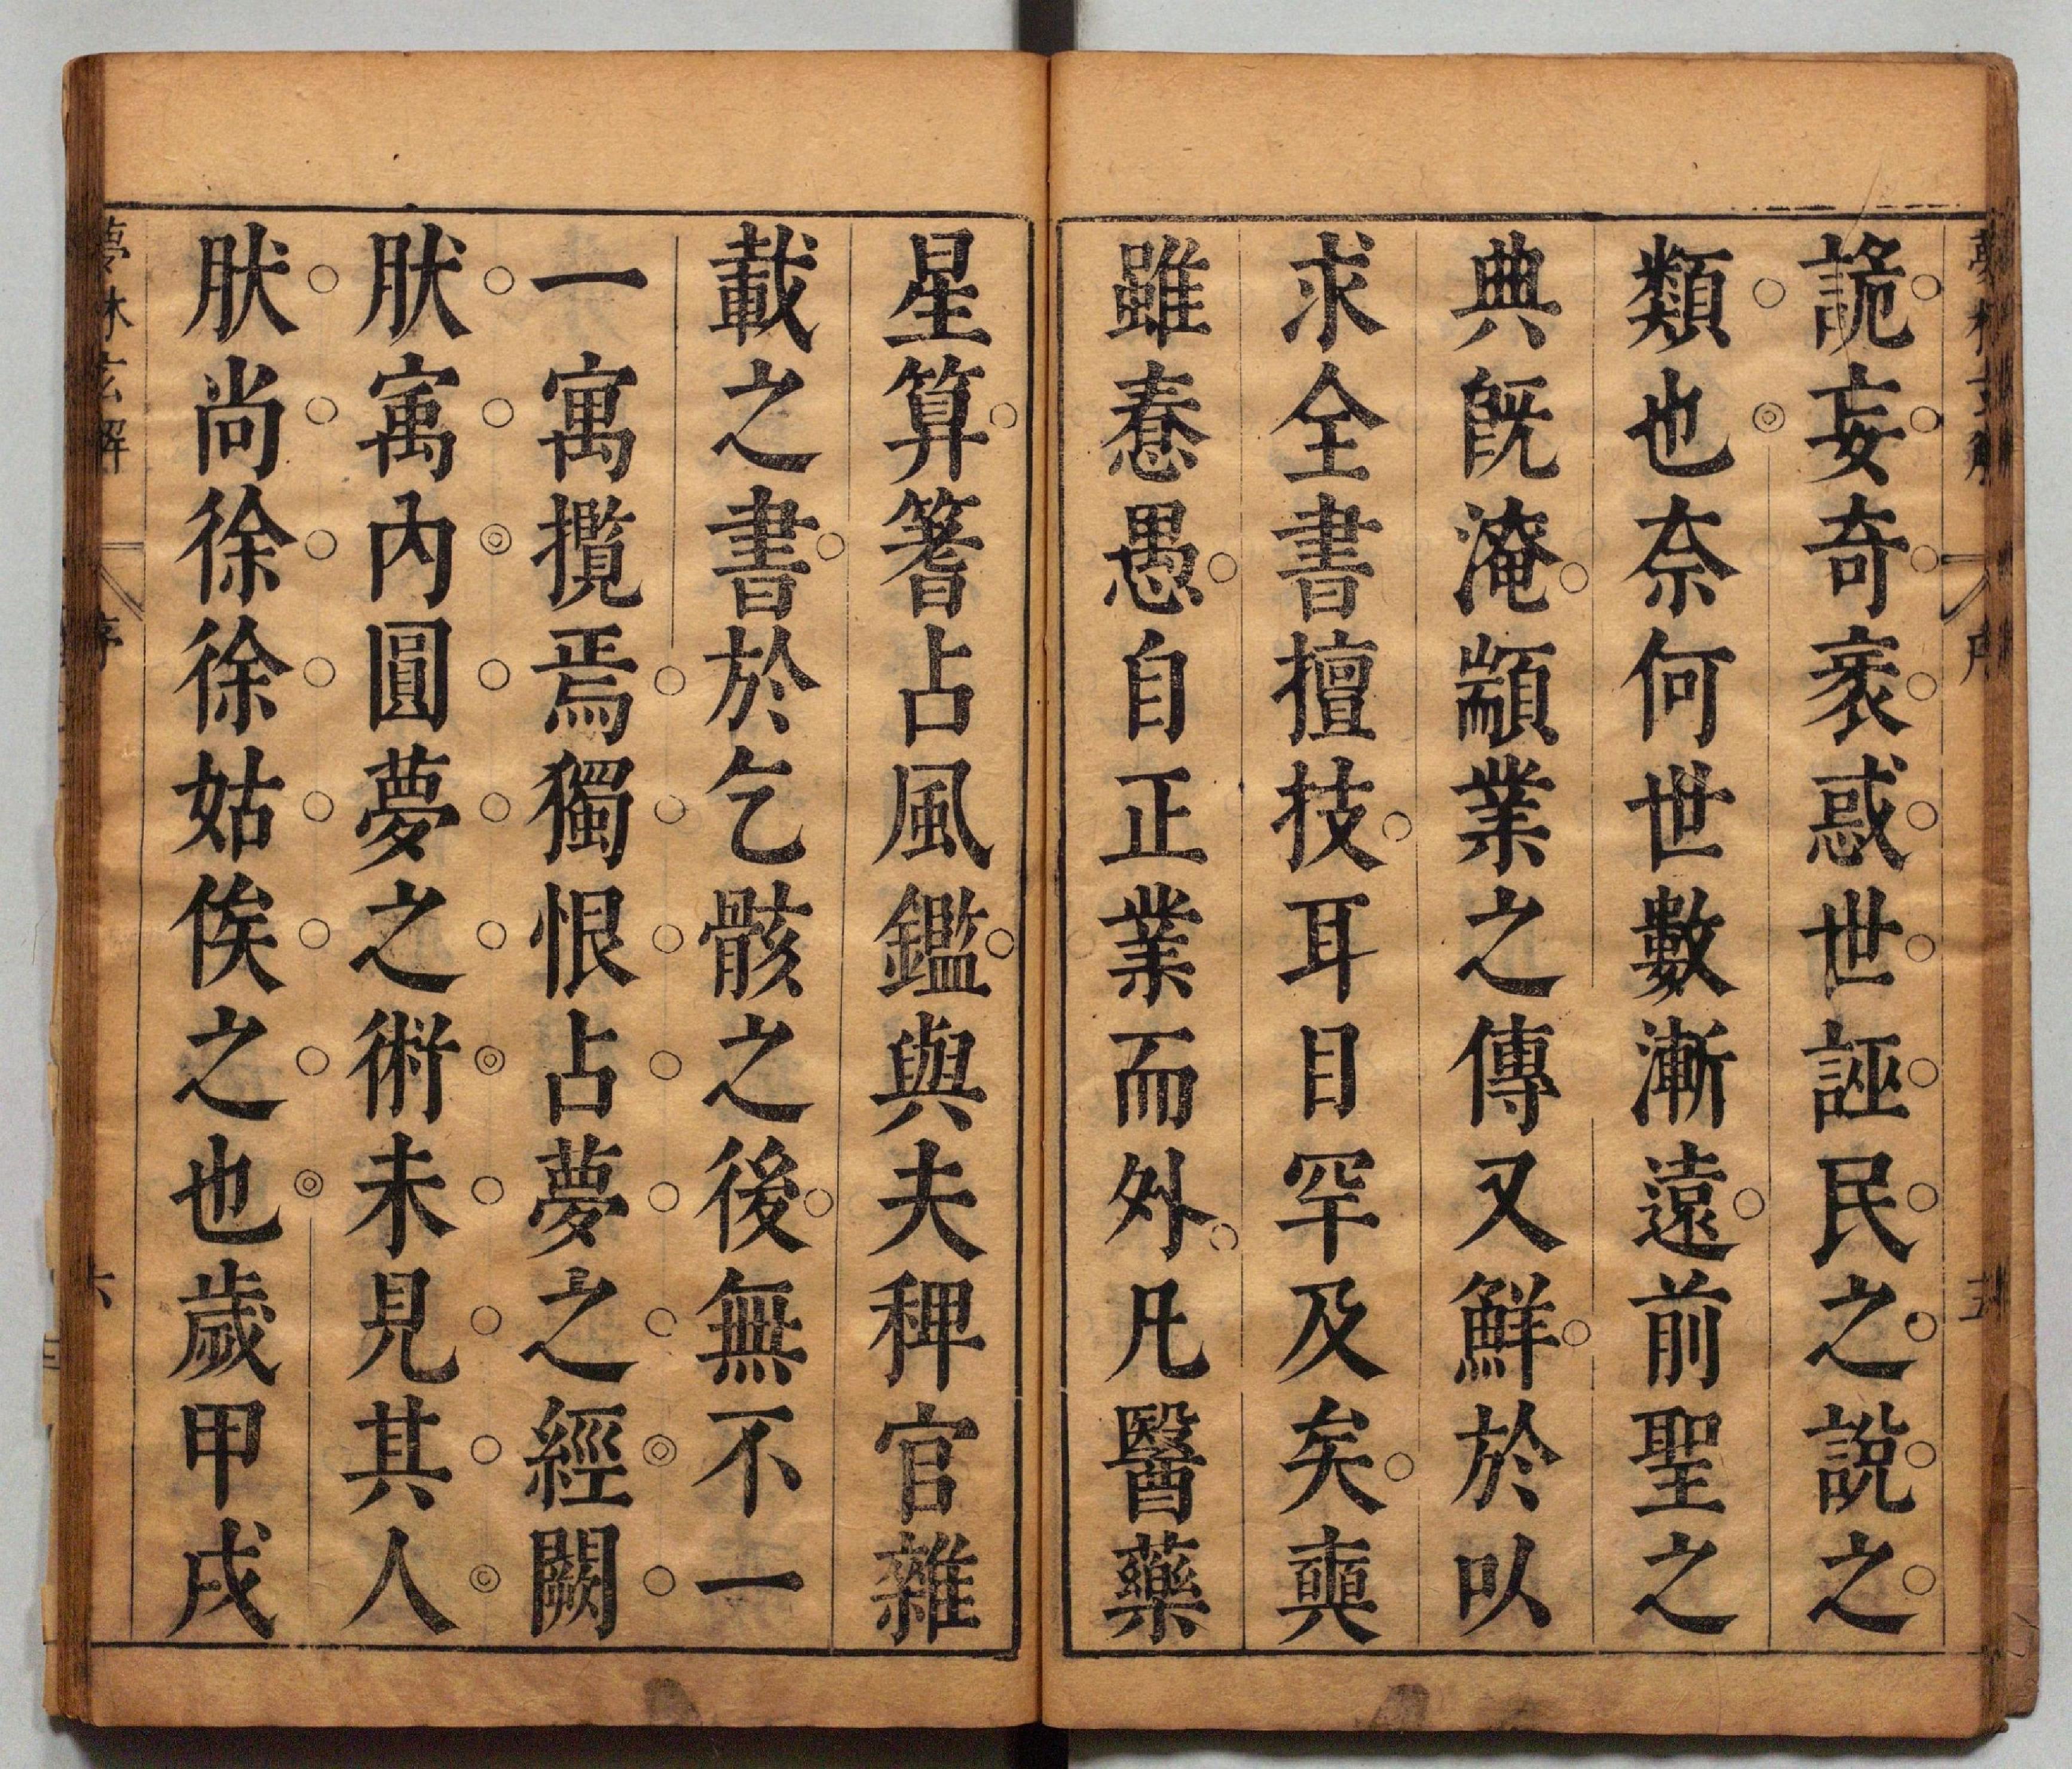 詭妄奇衺惑世誣民之說之
類也奈何世數漸遠前聖之
典既淹顓業之傳又鮮於以
求全書擅技耳目罕及矣奭
雖惷愚自正業而外凡醫藥
星算筮占風鑑與夫稗官雜
載之書於乞骸之後無不一
一寓攬焉獨恨占夢之經闕
肰寓內圓夢之術未見其人
肰尚徐徐姑俟之也歲甲戌
夢林玄解
序
六